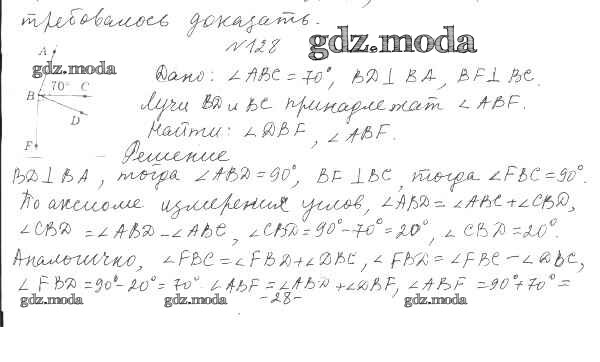 требовалось доказать.
№128
gdz.moda
A
gdz.moda
Дано: ∠ABC = 70°, BD⊥BA, BF⊥BC.
B 70° C
Лучи BD и BC принадлежат ∠ABF.
D
Найти: ∠DBF, ∠ABF.
F
Решение
BD⊥BA, тогда ∠ABD = 90°, BF⊥BC, тогда ∠FBC = 90°.
По аксиоме измерения углов, ∠ABD = ∠ABC + ∠CBD,
∠CBD = ∠ABD − ∠ABC, ∠CBD = 90° − 70° = 20°, ∠CBD = 20°.
Аналогично, ∠FBC = ∠FBD + ∠DBC, ∠FBD = ∠FBC − ∠DBC,
∠FBD = 90° − 20° = 70°. ∠ABF = ∠ABD + ∠DBF, ∠ABF = 90° + 70° =
gdz.moda gdz.moda -28- gdz.moda